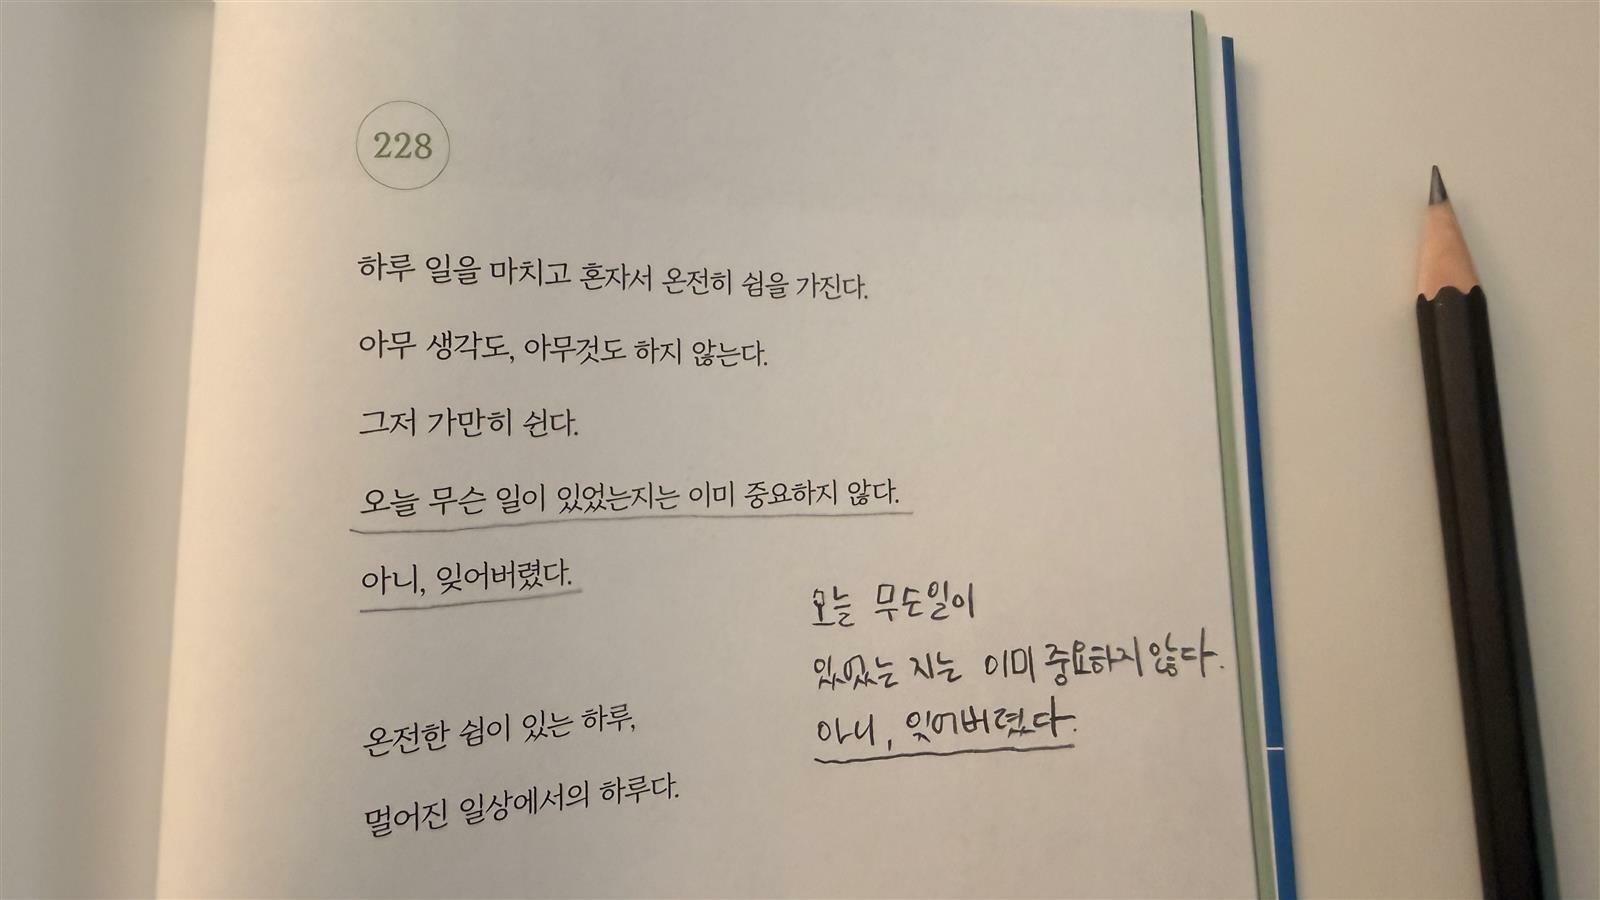 228
하루 일을 마치고 혼자서 온전히 쉼을 가진다.
아무 생각도, 아무것도 하지 않는다.
그저 가만히 쉰다.
오늘 무슨 일이 있었는지는 이미 중요하지 않다.
아니, 잊어버렸다.
오늘 무슨일이
있었는 지는 이미 중요하지 않다.
아니, 잊어버렸다.
온전한 쉼이 있는 하루,
멀어진 일상에서의 하루다.